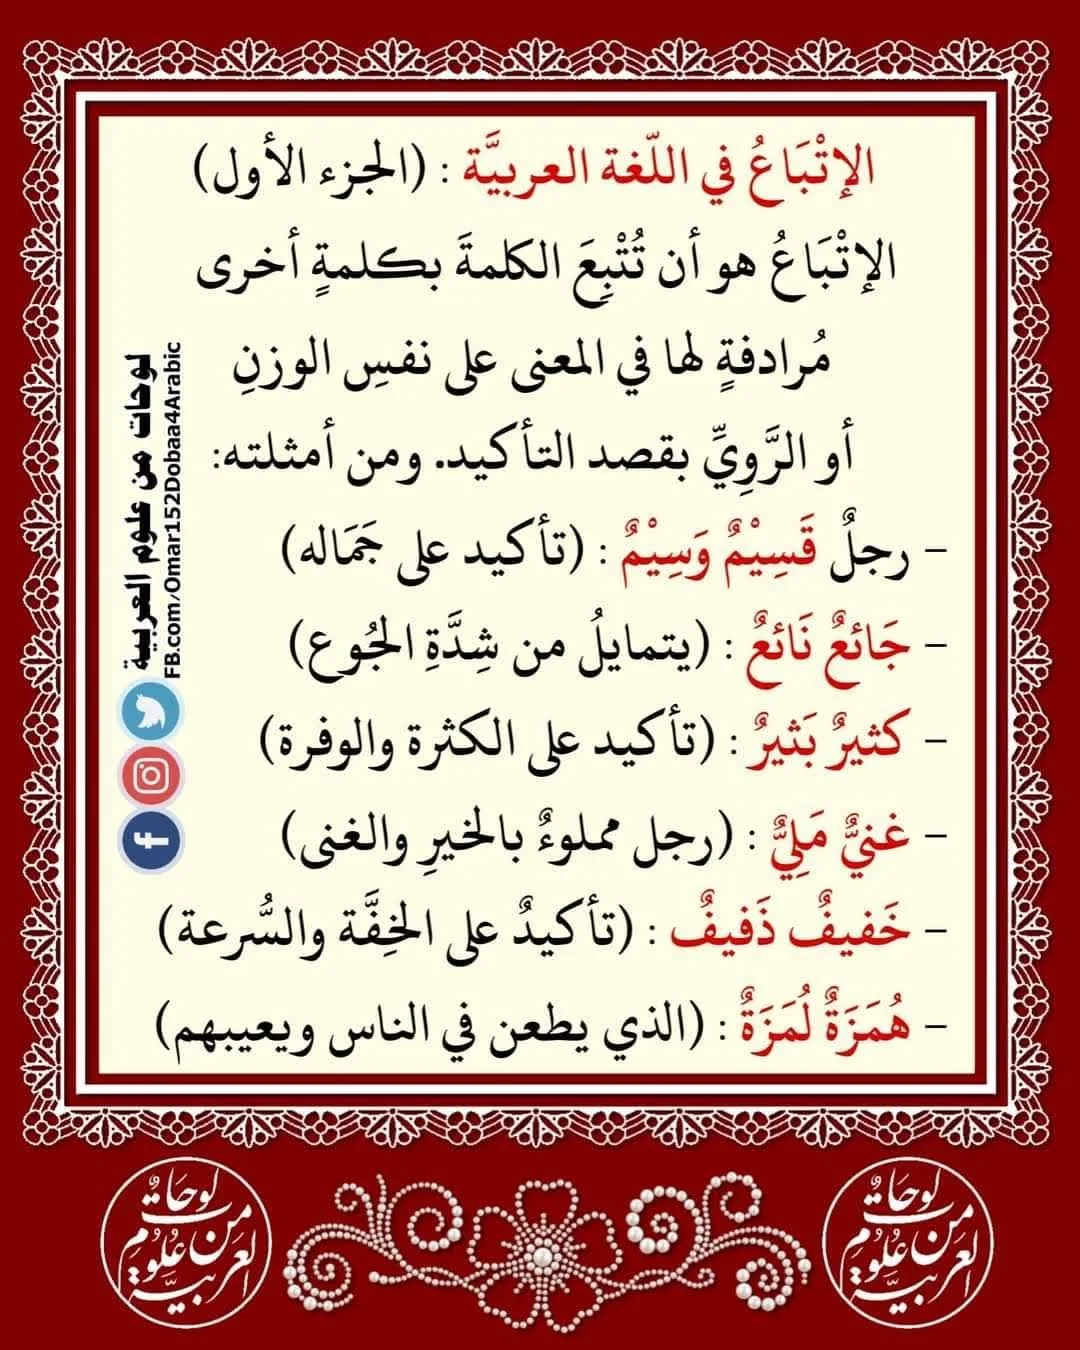 الإتْبَاعُ في اللّغة العربيَّة : (الجزء الأول)
الإتْبَاعُ هو أن تُتْبِعَ الكلمةَ بكلمةٍ أخرى
مُرادفةٍ لها في المعنى على نفسِ الوزنِ
أو الرَّوِيِّ بقصد التأكيد. ومن أمثلته:
- رجلٌ قَسِيْمٌ وَسِيْمٌ : (تأكيد على جَمَاله)
- جَائعٌ نَائعٌ : (يتمايلُ من شِدَّةِ الجُوع)
- كثيرٌ بَثيرٌ : (تأكيد على الكثرة والوفرة)
- غنيٌّ مَلِيٌّ : (رجل مملوءٌ بالخيرِ والغنى)
- خَفيفٌ ذَفيفٌ : (تأكيدٌ على الخِفَّة والسُّرعة)
- هُمَزَةٌ لُمَزَةٌ : (الذي يطعن في الناس ويعيبهم)
لوحات من علوم العربية
FB.com/Omar152Dobaa4Arabic
لوحَاتٌ من عُلُومِ العَربيَّة
لوحَاتٌ من عُلُومِ العَربيَّة